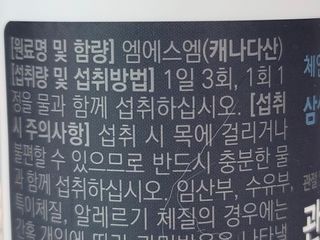 [원료명 및 함량] 엠에스엠(캐나다산)
[섭취량 및 섭취방법] 1일 3회, 1회 1
정을 물과 함께 섭취하십시오. [섭취
시 주의사항] 섭취 시 목에 걸리거나
불편할 수 있으므로 반드시 충분한 물
과 함께 섭취하십시오. 임산부, 수유부,
특이체질, 알레르기 체질의 경우에는
간혹 개인에 따라 과민반응을 나타낼
관절